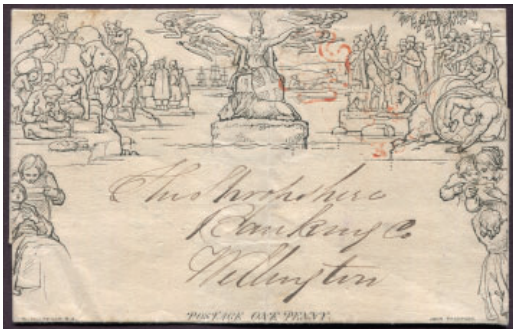 The Shropshire
Banking Co
Wellington
POSTAGE ONE PENNY.